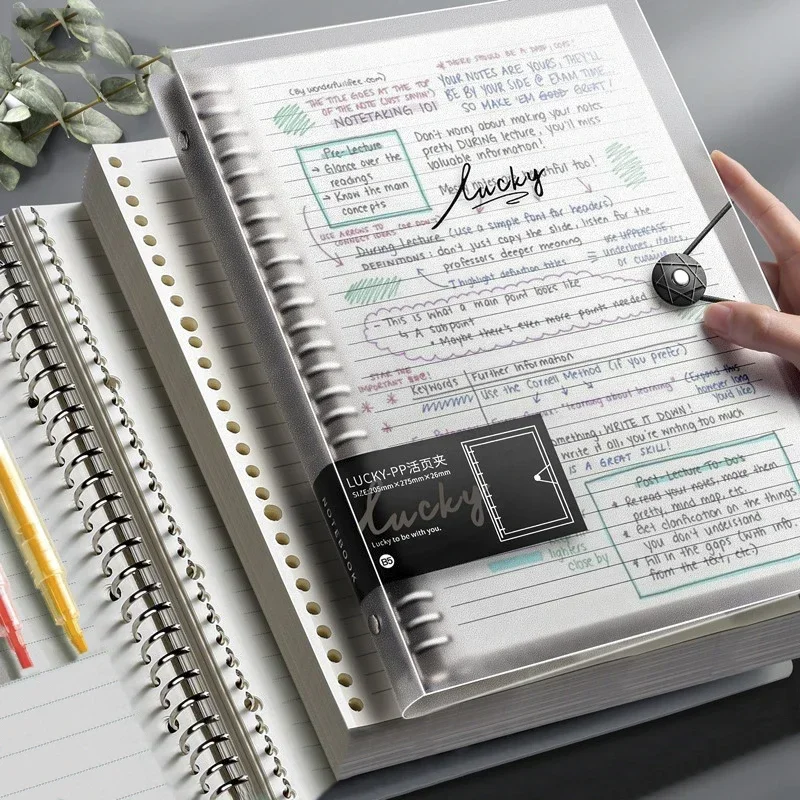 (By wonderfullifee.com)
THE TITLE GOES AT THE TOP
OF THE NOTE (JUST SAYIN')
NOTETAKING 101
* THERE SHOULD BE A
YOUR NOTES ARE YOURS, THEY'LL
BE BY YOUR SIDE @ EXAM TIME...
SO MAKE 'EM GOOD GREAT!
Pre-Lecture
→ Glance over the
readings
→ Know the main
concepts
Don't worry about making your notes
pretty DURING lecture, you'll miss
valuable information!
too!
lucky
USE ARROWS TO
CONNECT IDEAS (OR DON'T
During Lecture (use a simple font for headers)
DEFINITIONS: don't just copy the slide, listen for the
professors deeper meaning
I highlight definition titles
= use UPPERCASE,
underlines, italics,
or cursive
- This is what a main point looks like
↳ A subpoint
* Maybe there's even more points needed
* STAR THE
IMPORTANT
Keywords
Further Information
Use the Cornell Method (if you prefer)
"learning about learning"
(Expand this
however long
you'd like)
WRITE IT DOWN!
write it all; you're writing too much
IS A GREAT SKILL!
Post-Lecture To-Do's
* Re-read your notes, make them
pretty, mind map, etc.
* Get clarification on the things
you don't understand
* Fill in the gaps (with info.
from the text, etc.)
close by
LUCKY-PP活页夹
SIZE:205mm×275mm×26mm
lucky
Lucky to be with you.
B5
NOTEBOOK